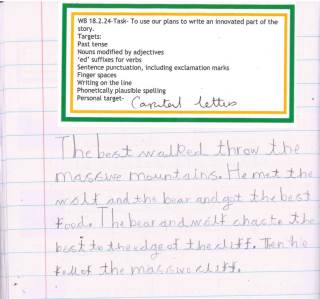 WB 18.2.24-Task- To use our plans to write an innovated part of the
story.
Targets:
Past tense
Nouns modified by adjectives
'ed' suffixes for verbs
Sentence punctuation, including exclamation marks
Finger spaces
Writing on the line
Phonetically plausible spelling
Personal target- Capital letters
The best walked throw the
massive mountains. He met the
wolf and the bear and got the best
food. The bear and wolf chaste the
best to the edge of the cliff. Then he
fell of the massive cliff.